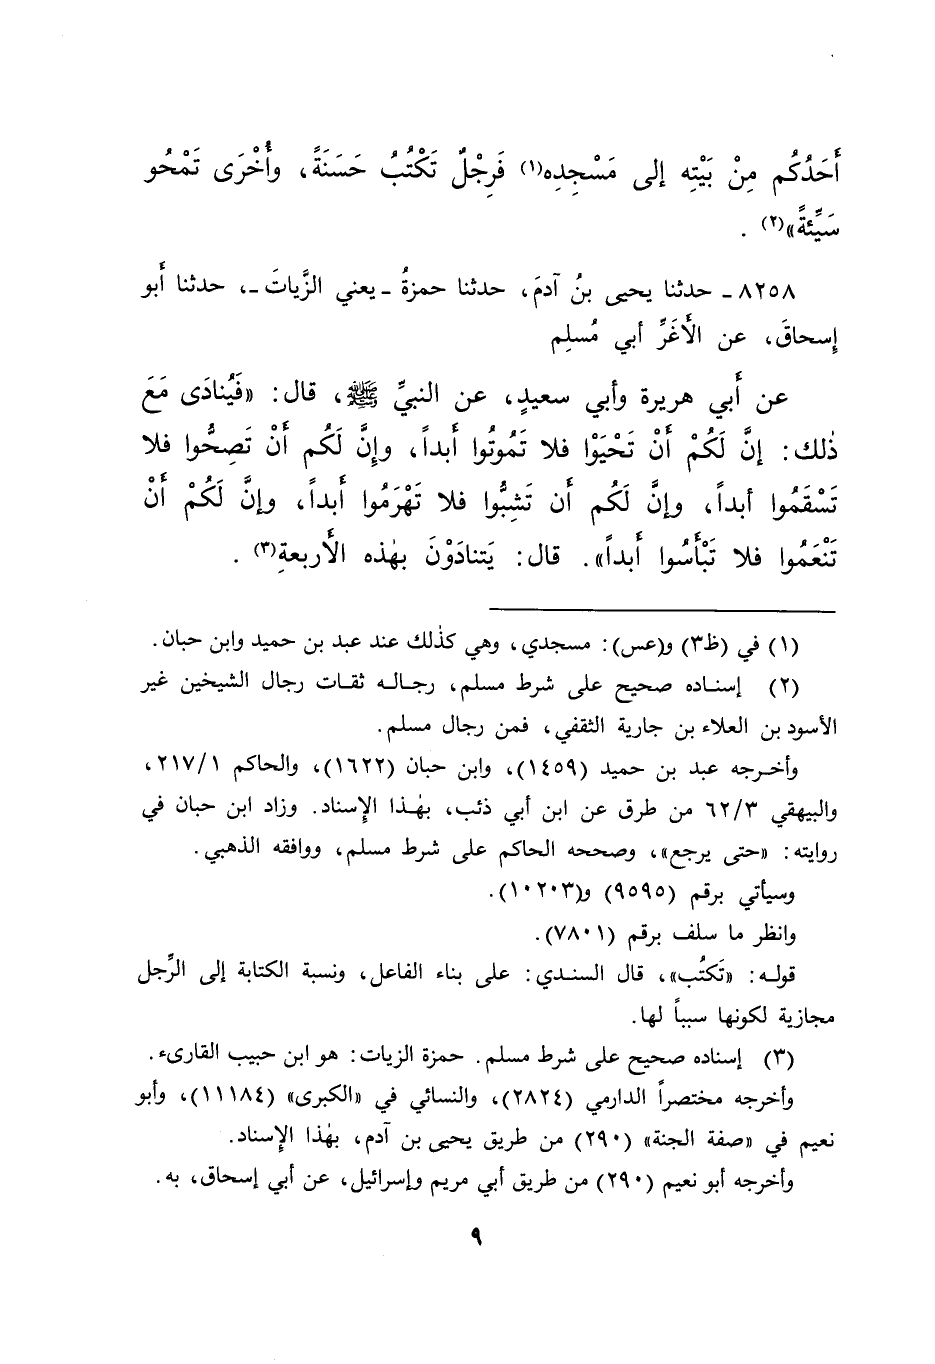 أَحَدُكُم مِنْ بَيْتِه إلى مَسْجِدِه(١) فَرِجْلٌ تَكْتُبُ حَسَنَةً، وأُخْرَى تَمْحُو
سَيِّئةً»(٢) .
٨٢٥٨ـ حدثنا يحيى بنُ آدمَ، حدثنا حمزةُ ـ يعني الزَّياتَ ـ، حدثنا أَبو
إِسحاقَ، عن الأَغَرِّ أبي مُسلِم
عن أَبي هريرة وأبي سعيدٍ، عن النبيِّ ﷺ، قال: «فَيُنادَى مَعَ
ذٰلك: إنَّ لَكُمْ أَنْ تَحْيَوْا فلا تَمُوتُوا أَبداً، وإِنَّ لَكُم أَنْ تَصِحُّوا فلا
تَسْقَمُوا أبداً، وإنَّ لَكُم أن تَشِبُّوا فلا تَهْرَمُوا أَبداً، وإنَّ لَكُمْ أَنْ
تَنْعَمُوا فلا تَبْأَسُوا أَبداً». قال: يَتنادَوْنَ بهٰذه الأَربعةِ(٣) .
(١) في (ظ٣) و(عس): مسجدي، وهي كذٰلك عند عبد بن حميد وابن حبان.
(٢) إسناده صحيح على شرط مسلم، رجاله ثقات رجال الشيخين غير
الأسود بن العلاء بن جارية الثقفي، فمن رجال مسلم.
وأخرجه عبد بن حميد (١٤٥٩)، وابن حبان (١٦٢٢)، والحاكم ٢١٧/١،
والبيهقي ٦٢/٣ من طرق عن ابن أبي ذئب، بهٰذا الإسناد. وزاد ابن حبان في
روايته: «حتى يرجع»، وصححه الحاكم على شرط مسلم، ووافقه الذهبي.
وسيأتي برقم (٩٥٩٥) و(١٠٢٠٣).
وانظر ما سلف برقم (٧٨٠١).
قوله: «تَكتُب»، قال السندي: على بناء الفاعل، ونسبة الكتابة إلى الرِّجل
مجازية لكونها سبباً لها.
(٣) إسناده صحيح على شرط مسلم. حمزة الزيات: هو ابن حبيب القارىء.
وأخرجه مختصراً الدارمي (٢٨٢٤)، والنسائي في «الكبرى» (١١١٨٤)، وأبو
نعيم في «صفة الجنة» (٢٩٠) من طريق يحيى بن آدم، بهٰذا الإسناد.
وأخرجه أبو نعيم (٢٩٠) من طريق أبي مريم وإسرائيل، عن أبي إسحاق، به.
٩